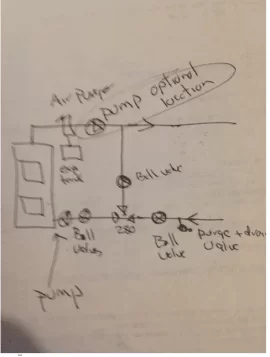 Air Purger
pump optional
location
exp
tank
Ball valve
Ball
Valves
280
Ball
Valve
purge + drain
Valve
pump